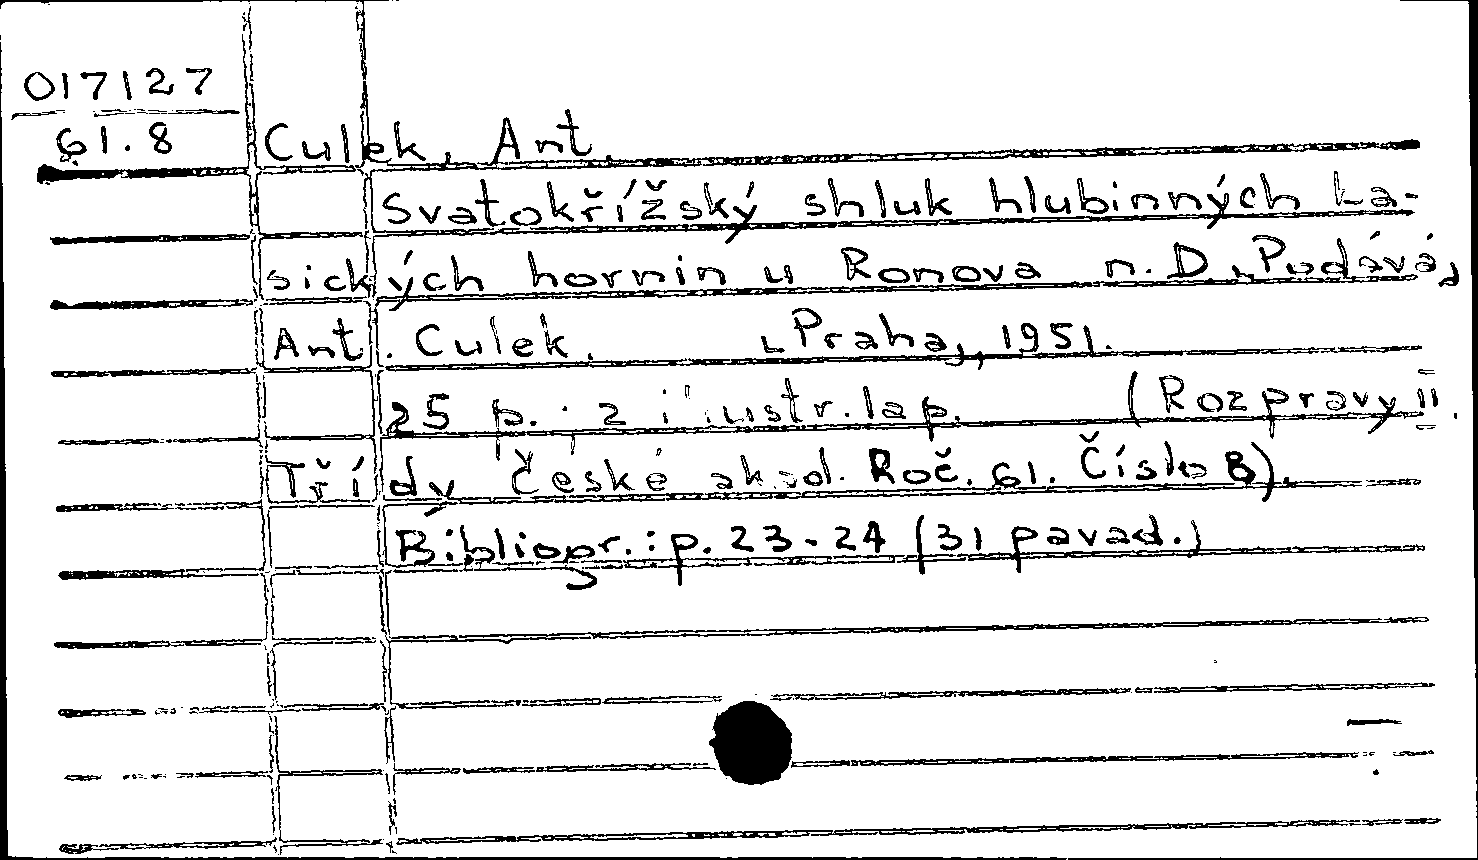 017127
61.8 Culek, Ant.
Svatokřížský shluk hlubinných ba-
sických hornin u Ronova n. D. Podává
Ant. Culek. Praha, 1951.
25 p. 2 illustr. lap. (Rozpravy II.
Třídy České akad. Roč. 61. Číslo 8).
Bibliogr.: p. 23-24 (31 pavad.)